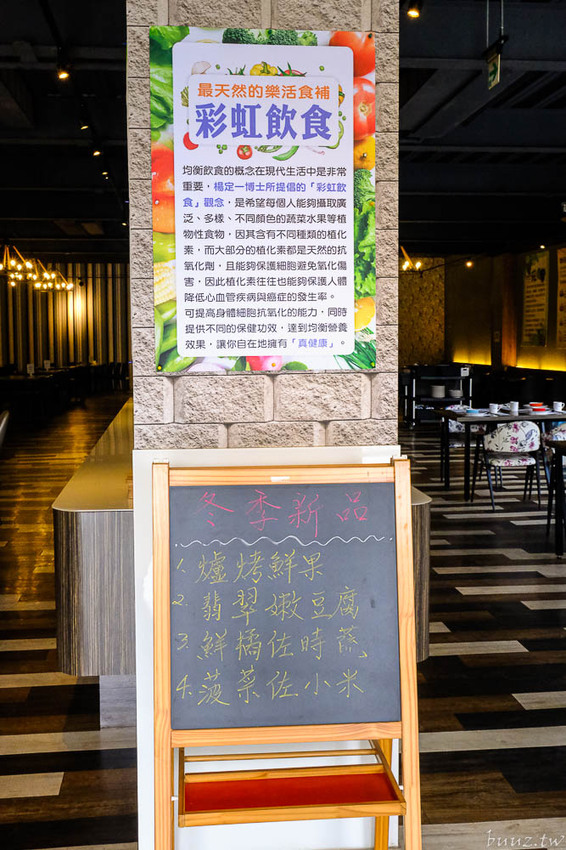 最天然的樂活食補
彩虹飲食
均衡飲食的概念在現代生活中是非常
重要，楊定一博士所提倡的「彩虹飲
食」觀念，是希望每個人能夠攝取廣
泛、多樣、不同顏色的蔬菜水果等植
物性食物，因其含有不同種類的植化
素，而大部分的植化素都是天然的抗
氧化劑，且能夠保護細胞避免氧化傷
害，因此植化素往往也能夠保護人體
降低心血管疾病與癌症的發生率。
可提高身體細胞抗氧化的能力，同時
提供不同的保健功效，達到均衡營養
效果，讓你自在地擁有「真健康」。
冬季新品
1. 爐烤鮮果
2. 翡翠嫩豆腐
3. 鮮橘佐時蔬
4. 菠菜佐小米
buuz.tw